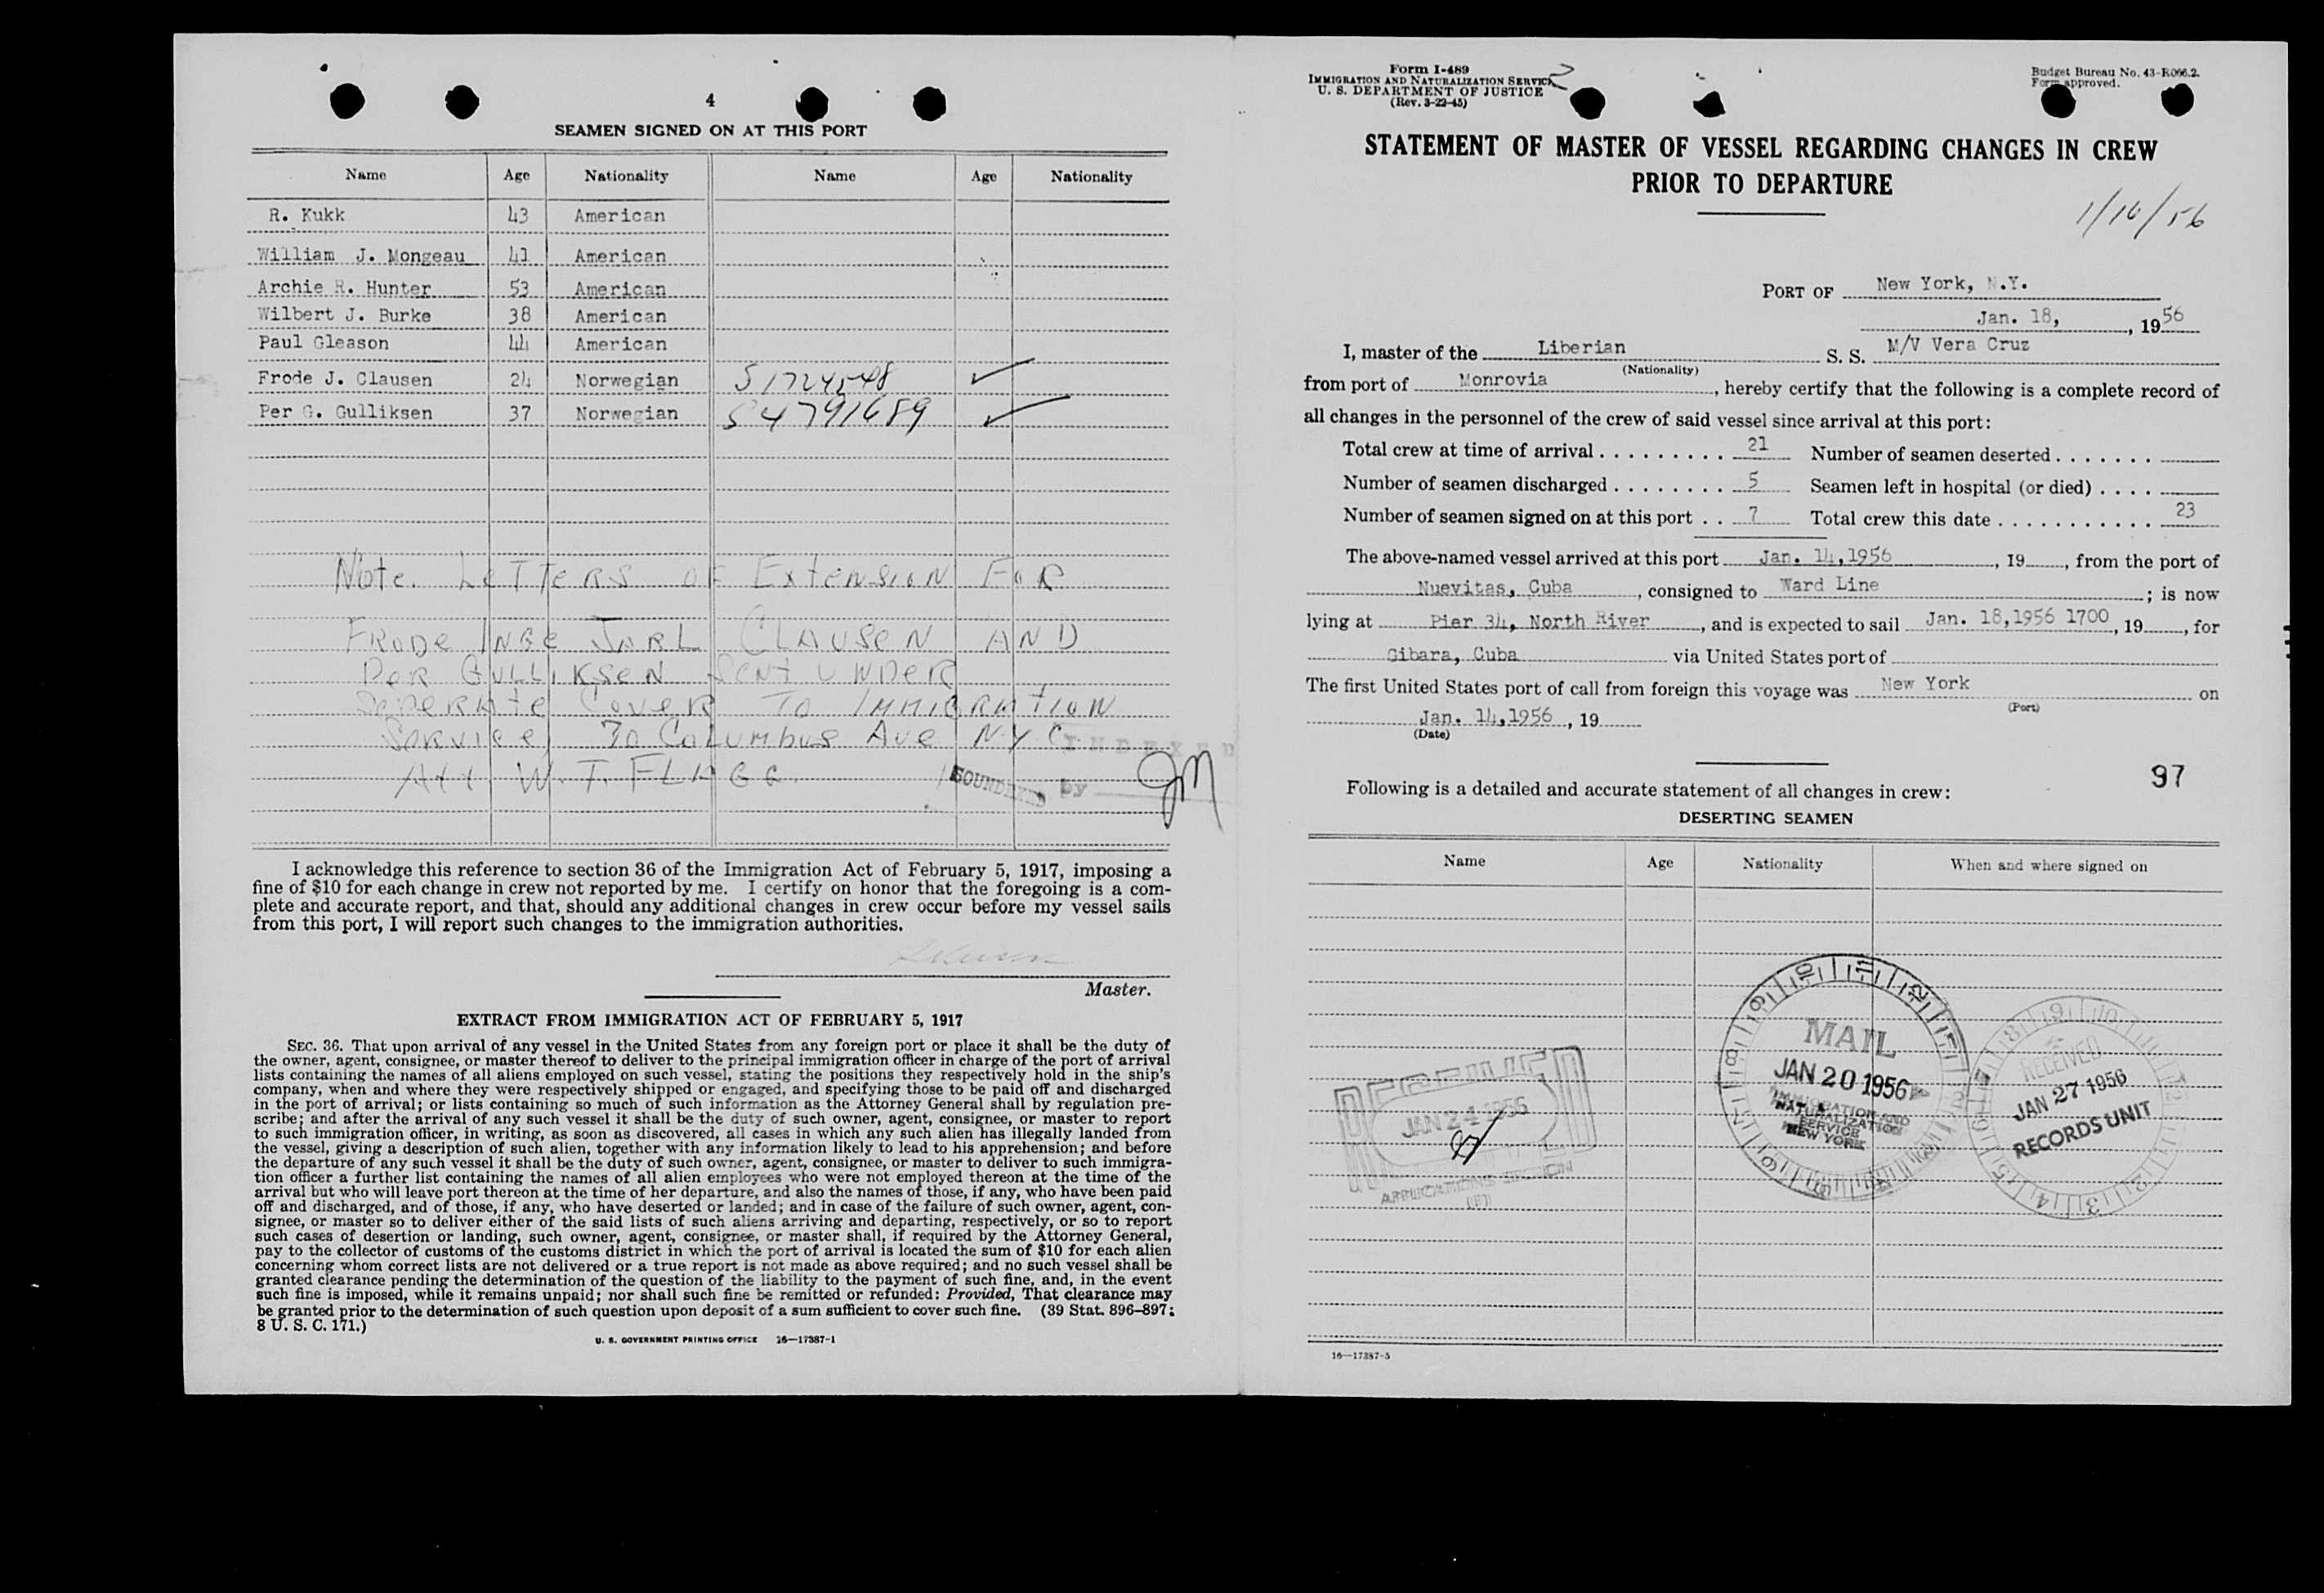 4
SEAMEN SIGNED ON AT THIS PORT
Name Age Nationality Name Age Nationality
R. Kukk 43 American
William J. Mongeau 41 American
Archie R. Hunter 53 American
Wilbert J. Burke 38 American
Paul Gleason 44 American
Frode J. Clausen 24 Norwegian S1724548 ✓
Per G. Gulliksen 37 Norwegian S4791689 ✓
Note. LETTERS OF EXTENSION FOR
FRODE INGE JARL CLAUSEN AND
PER GULLIKSEN SENT UNDER
SEPERATE COVER TO IMMIGRATION
SERVICE 70 COLUMBUS AVE N.Y.C.
INDEXED
Att W. T. FLAGG.
SOUNDEXED by JM
I acknowledge this reference to section 36 of the Immigration Act of February 5, 1917, imposing a
fine of $10 for each change in crew not reported by me. I certify on honor that the foregoing is a com-
plete and accurate report, and that, should any additional changes in crew occur before my vessel sails
from this port, I will report such changes to the immigration authorities.
Master.
EXTRACT FROM IMMIGRATION ACT OF FEBRUARY 5, 1917
SEC. 36. That upon arrival of any vessel in the United States from any foreign port or place it shall be the duty of
the owner, agent, consignee, or master thereof to deliver to the principal immigration officer in charge of the port of arrival
lists containing the names of all aliens employed on such vessel, stating the positions they respectively hold in the ship's
company, when and where they were respectively shipped or engaged, and specifying those to be paid off and discharged
in the port of arrival; or lists containing so much of such information as the Attorney General shall by regulation pre-
scribe; and after the arrival of any such vessel it shall be the duty of such owner, agent, consignee, or master to report
to such immigration officer, in writing, as soon as discovered, all cases in which any such alien has illegally landed from
the vessel, giving a description of such alien, together with any information likely to lead to his apprehension; and before
the departure of any such vessel it shall be the duty of such owner, agent, consignee, or master to deliver to such immigra-
tion officer a further list containing the names of all alien employees who were not employed thereon at the time of the
arrival but who will leave port thereon at the time of her departure, and also the names of those, if any, who have been paid
off and discharged, and of those, if any, who have deserted or landed; and in case of the failure of such owner, agent, con-
signee, or master so to deliver either of the said lists of such aliens arriving and departing, respectively, or so to report
such cases of desertion or landing, such owner, agent, consignee, or master shall, if required by the Attorney General,
pay to the collector of customs of the customs district in which the port of arrival is located the sum of $10 for each alien
concerning whom correct lists are not delivered or a true report is not made as above required; and no such vessel shall be
granted clearance pending the determination of the question of the liability to the payment of such fine, and, in the event
such fine is imposed, while it remains unpaid; nor shall such fine be remitted or refunded: Provided, That clearance may
be granted prior to the determination of such question upon deposit of a sum sufficient to cover such fine. (39 Stat. 896–897;
8 U. S. C. 171.)
U. S. GOVERNMENT PRINTING OFFICE 16—17387-1
Form I-489
IMMIGRATION AND NATURALIZATION SERVICE
U. S. DEPARTMENT OF JUSTICE
(Rev. 3-22-45)
2
Budget Bureau No. 43-R066.2.
Form approved.
STATEMENT OF MASTER OF VESSEL REGARDING CHANGES IN CREW
PRIOR TO DEPARTURE
1/16/56
PORT OF New York, N.Y.
Jan. 18, , 1956
I, master of the Liberian S. S. M/V Vera Cruz
(Nationality)
from port of Monrovia , hereby certify that the following is a complete record of
all changes in the personnel of the crew of said vessel since arrival at this port:
Total crew at time of arrival . . . . . . . . . 21 Number of seamen deserted . . . . . . .
Number of seamen discharged . . . . . . . . 5 Seamen left in hospital (or died) . . . .
Number of seamen signed on at this port . . 7 Total crew this date . . . . . . . . . . . . 23
The above-named vessel arrived at this port Jan. 14,1956 , 19 , from the port of
Nuevitas, Cuba , consigned to Ward Line ; is now
lying at Pier 34, North River , and is expected to sail Jan. 18,1956 1700 , 19 , for
Gibara, Cuba via United States port of
The first United States port of call from foreign this voyage was New York on
(Port)
Jan. 14,1956 , 19
(Date)
97
Following is a detailed and accurate statement of all changes in crew:
DESERTING SEAMEN
Name Age Nationality When and where signed on
RECEIVED
JAN 24 1956
APPLICATIONS SECTION
MAIL
JAN 20 1956
IMMIGRATION AND
NATURALIZATION
SERVICE
NEW YORK
RECEIVED
JAN 27 1956
RECORDS UNIT
16—17387-5